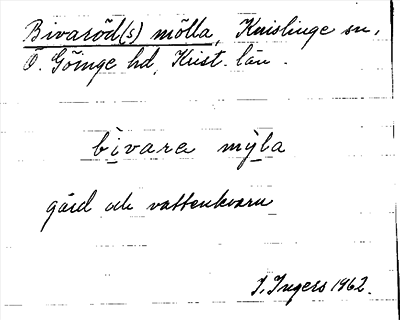 Bivaröd(s) mölla, Knislinge sn,
Ö. Göinge hd, Krist. län.
bìvare mỳla
gård och vattenkvarn
I. Ingers 1962.